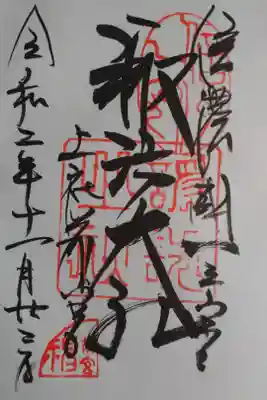 信濃國一之宮
諏訪大社
上社前宮
令和二年十一月廿三日